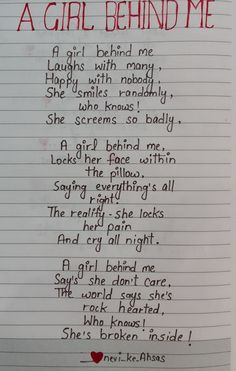 A GIRL BEHIND ME
A girl behind me
Laughs with many,
Happy with nobody,
She smiles randomly,
who knows!
She screems so badly,
A girl behind me,
Locks her face within
the pillow,
Saying everything's all
right.
The reality - she locks
her pain
And cry all night.
A girl behind me
Say's she don't care,
The world says she's
rock hearted,
Who knows!
She's broken inside!
nevi_ke_Ahsas